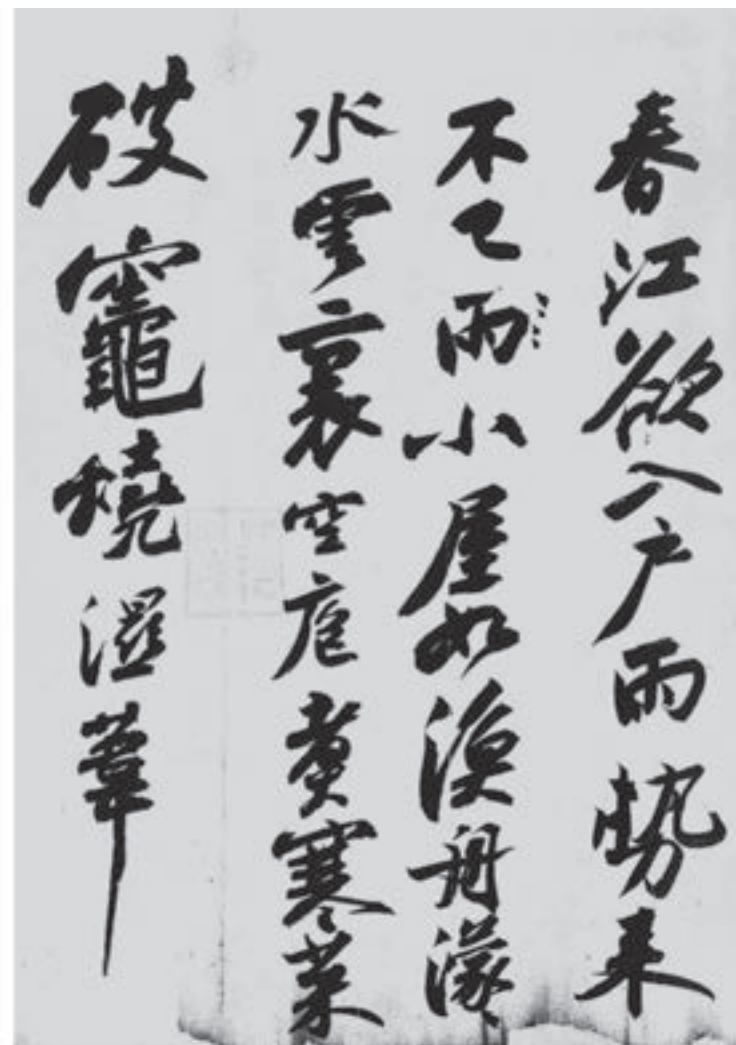 春江欲入户雨勢来
不已雨小屋如漁舟濛〻
水雲裏空庖煑寒菜
破竈燒濕葦